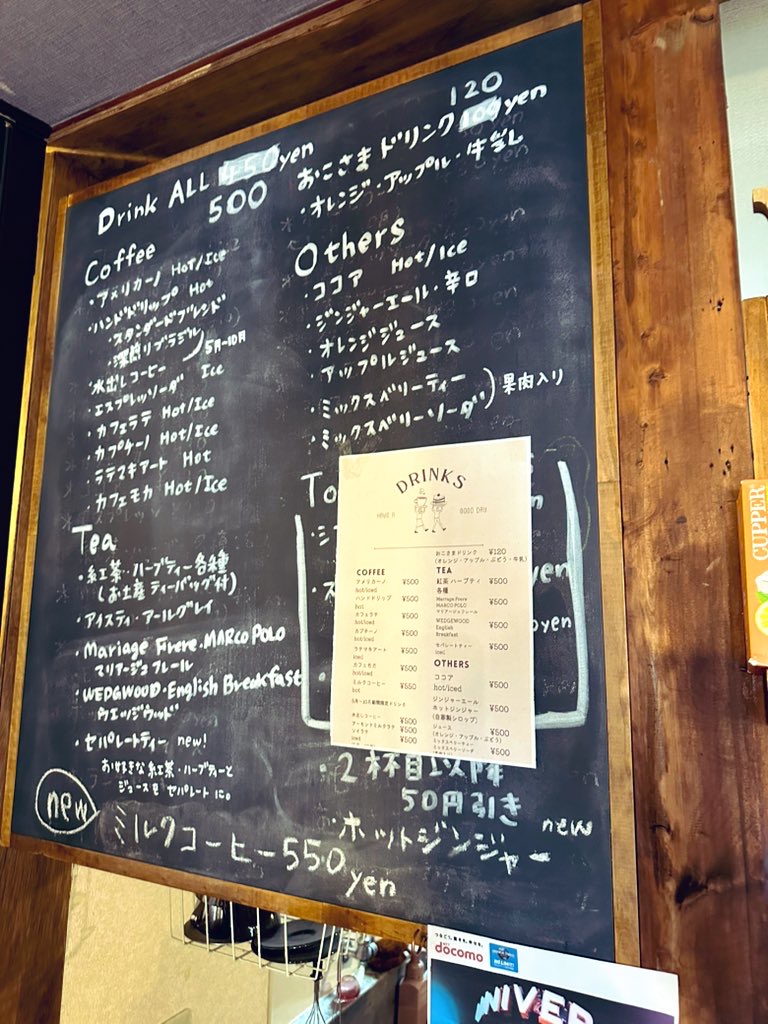 Drink ALL 450yen
500
Coffee
・アメリカーノ Hot/Ice
・ハンドドリップ Hot
・スタンダードブレンド
・深煎りブラジル
・水出しコーヒー 5月-10月
・エスプレッソソーダ Ice
・カフェラテ Hot/Ice
・カプチーノ Hot/Ice
・ラテマキアート Hot
・カフェモカ Hot/Ice
Tea
・紅茶・ハーブティー各種
(お土産ティーバッグ付)
・アイスティ・アールグレイ
・Mariage Frere・MARCO POLO
マリアージュフレール
・WEDGWOOD・English Breakfast
ウエッジウッド
・セパレートティー new!
お好きな紅茶・ハーブティーと
ジュースを セパレートに。
new
ミルクコーヒー550yen
120
おこさまドリンク100yen
・オレンジ・アップル・牛乳
Others
・ココア Hot/Ice
・ジンジャーエール・辛口
・オレンジジュース
・アップルジュース
・ミックスベリーティー
・ミックスベリーソーダ
果肉入り
To
yen
yen
DRINKS
HAVE A GOOD DAY
おこさまドリンク ¥120
(オレンジ・アップル・ぶどう・牛乳)
COFFEE
アメリカーノ ¥500
hot/iced
ハンドドリップ ¥500
hot
カフェラテ ¥500
hot/iced
カプチーノ ¥500
hot/iced
ラテマキアート ¥500
hot
カフェモカ ¥500
hot/iced
ミルクコーヒー ¥550
hot
5月~10月期間限定ドリンク
水出しコーヒー ¥500
アーモンドミルクラテ ¥500
ソイラテ ¥500
iced
TEA
紅茶 ハーブティ ¥500
各種
Mariage Frere ¥500
MARCO POLO
マリアージュフレール
WEDGEWOOD ¥500
English
Breakfast
セパレートティー ¥500
iced
OTHERS
ココア ¥500
hot/iced
ジンジャーエール ¥500
ホットジンジャー ¥500
(自家製シロップ)
ジュース ¥500
(オレンジ・アップル・ぶどう)
ミックスベリーティー ¥500
ミックスベリーソーダ ¥500
・2杯目以降
50円引き
・ホットジンジャー new
CUPPER
döcomo